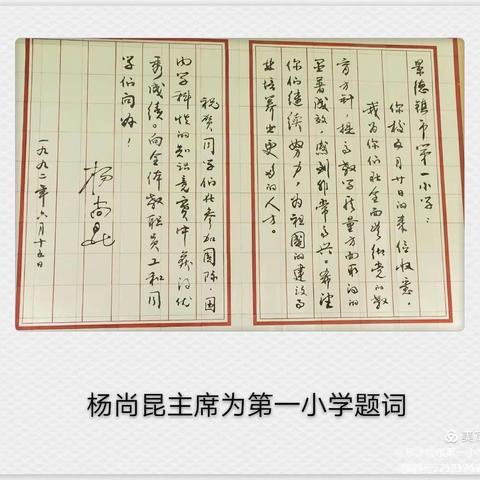 景德镇市第一小学：
你校五月廿日的来信收悉。
我为你们在全面贯彻党的教
育方针，提高教学质量方面取得的
显著成效，感到非常高兴。希望
你们继续努力，为祖国的建设事
业培养出更多的人才。
祝贺同学们在参加国际、国
内学科性的知识竞赛中获得优
秀成绩。向全体教职员工和同
学们问好！
杨尚昆
一九九二年六月十五日
杨尚昆主席为第一小学题词